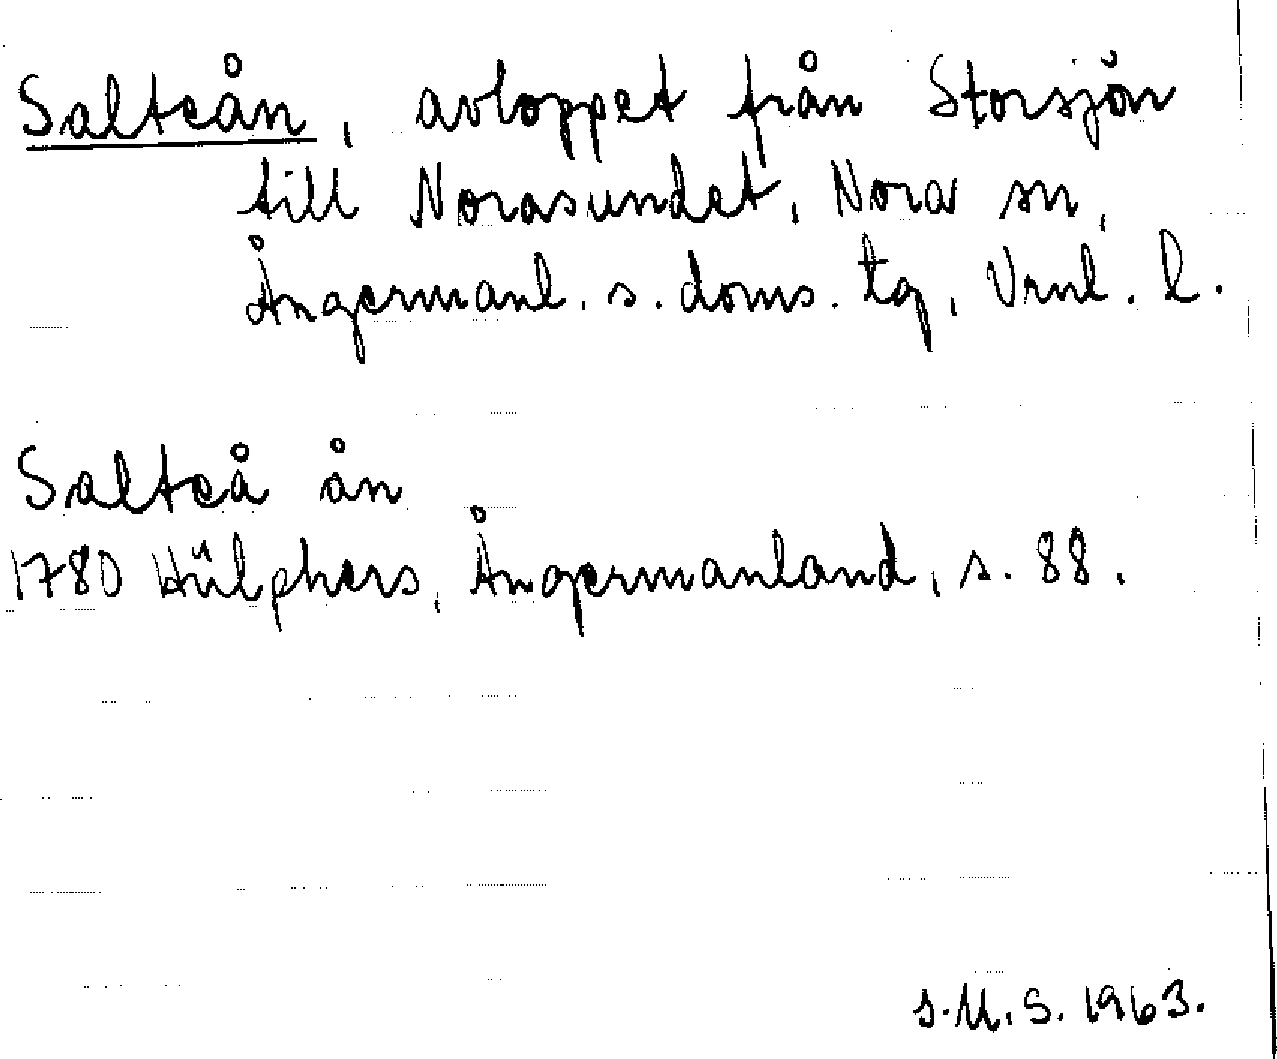 Salteån, avloppet från Storsjön
till Norasundet, Nora sn,
Ångermanl. s. doms. tg, Vrnl. l.
Salteå ån
1780 Hülphers, Ångermanland, s. 88.
s.U.S. 1963.